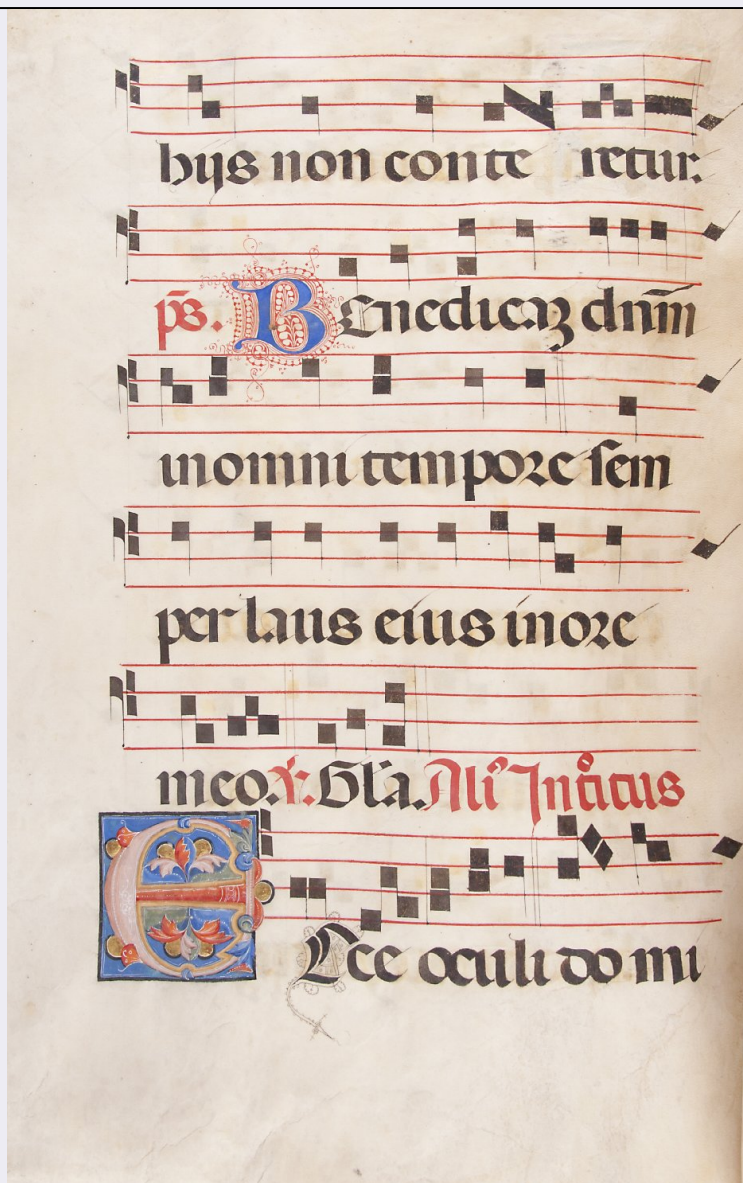 hijs non conte retur.
ps. Benedicaz dnm
in omni tempore sem
per laus eius in ore
meo. V. Gl'a. Ali' Introitus
Ecce oculi do mi